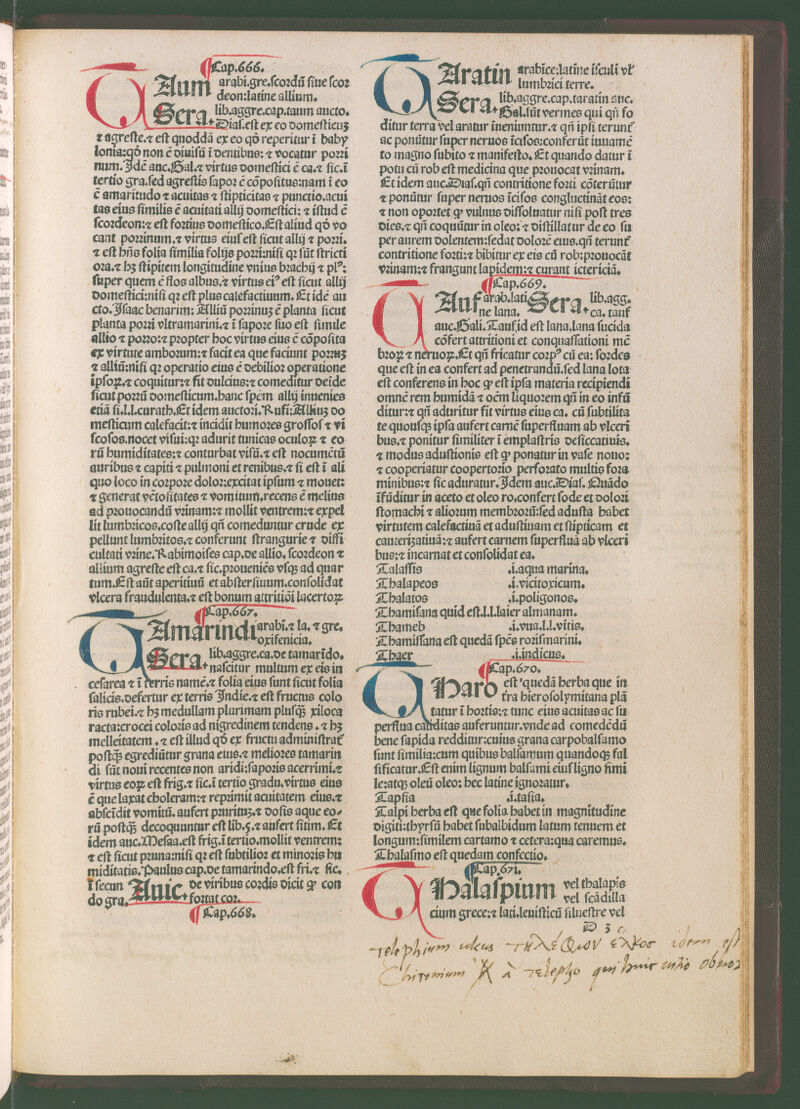 Cap.666.
TAum arabi.gre.scordū siue scor
deon:latine allium.
Sera. lib.aggre.cap.taum aucto.
Dias.est ex eo domesticuꝫ
⁊ agreste.⁊ est quoddā ex eo qđ reperitur ī baby
lonia:qđ non ē diuisū ī dentibus:⁊ vocatur porri
num.Idē auc.Gal.⁊ virtus domestici ē ca.⁊ sic.ī
tertio gra.sed agrestis sapor ē cōpositus:nam ī eo
ē amaritudo ⁊ acuitas ⁊ stipticitas ⁊ punctio.acui
tas eius similis ē acuitati allij domestici:⁊ istud ē
scordeon:⁊ est fortius domestico.Est aliud qđ vo
cant porrinum.⁊ virtus eiusͥ est sicut allij ⁊ porri.
⁊ est hn̄s folia similia folijs porri:nisi qꝛ sūt stricti
ora.⁊ hꝫ stipitem longitudine vnius brachij ⁊ plꝰ:
super quem ē flos albus.⁊ virtus eiꝰ est sicut allij
domestici:nisi qꝛ est plus calefactiuum.Et idē au
cto.Isaac benarim:Alliū porrinuꝫ ē planta sicut
planta porri vltramarini.⁊ ī sapore suo est simile
allio ⁊ porro:⁊ propter hoc virtus eius ē cōposita
ex virtute amborum:⁊ facit ea que faciunt porruꝫ
⁊ alliū:nisi qꝛ operatio eius ē debilior operatione
ipsoꝝ.⁊ coquitur:⁊ fit dulcius:⁊ comeditur deīde
sicut porrū domesticum.hanc spēm allij inuenies
etiā si.l.l.curath.Et idem auctori.Rufi:Alliuꝫ do
mesticum calefacit:⁊ incidit humores grossos ⁊ vi
scosos.nocet visui:qꝛ adurit tunicas oculoꝝ ⁊ eo
rū humiditates:⁊ conturbat visū.⁊ est nocumētū
auribus ⁊ capiti ⁊ pulmoni et renibus.⁊ si est ī ali
quo loco in corpore dolor:excitat ipsum ⁊ mouet:
⁊ generat vētositates ⁊ vomitum.recens ē melius
ad prouocandū vrinam:⁊ mollit ventrem:⁊ expel
lit lumbricos.coste allij qn̄ comeduntur crude ex
pellunt lumbritos.⁊ conferunt strangurie ⁊ diffi
cultati vrine.Rabimoises cap.de allio.scordeon ⁊
allium agreste est ca.⁊ sic.proueniēs vsqꝫ ad quar
tum.Est aūt aperitiuū et abstersiuum.consolidat
vlcera fraudulenta.⁊ est bonum attritiōi lacertoꝝ
Cap.667.
TAmarindi arabī.⁊ la.⁊ gre.
oxifenicia.
Sera. lib.aggre.ca.de tamarīdo.
nascitur multum ex eis in
cesarea ⁊ ī terris namē.⁊ folia eius sunt sicut folia
salicis.defertur ex terris Indie.⁊ est fructus colo
ris rubei.⁊ hꝫ medullam plurimam plusqꝫ xiloca
racta:crocei coloris ad nigredinem tendens.⁊ hꝫ
melleitatem.⁊ est illud qđ ex fructu administrat᷑
postqꝫ egrediūtur grana eius.⁊ meliores tamarin
di sūt noui recentes non aridi:saporis acerrimi.⁊
virtus eoꝝ est frig.⁊ sic.ī tertio gradu.virtus eius
ē que laxat choleram:⁊ reprimit acuitatem eius.⁊
abscīdit vomitū.aufert pruritꝫ.⁊ dosis aque eo-
rū postqꝫ decoquuntur est lib.ꞩ.⁊ aufert sitim.Et
idem auc.Mesaa.est frig.ī tertio.mollit ventrem:
⁊ est sicut pruna:nisi qꝛ est subtilior et minoris hu
miditatis.Paulus cap.de tamarindo.est fri.⁊ sic.
ī secun Auic. de viribus cordis dicit ꝙ con
do gra. fortat cor.
Cap.668.
TAratin arabice:latine īsculi vl᷑
lumbrici terre.
Sera. lib.aggre.cap.taratin auc.
Gal.sūt vermes qui qn̄ fo
ditur terra vel aratur īneniuntur.⁊ qn̄ ipsi terunt᷑
ac ponūtur super neruos īcisos:conferūt iuuamē
to magno subito ⁊ manifesto.Et quando datur ī
potu cū rob est medicina que prouocat vrinam.
Et idem auc.Dias.qn̄ contritione forti cōterūtur
⁊ ponūtur super neruos īcisos conglutināt eos:
⁊ non oportet ꝙ vulnus dissoluatur nisi post tres
dies.⁊ qn̄ coquūtur in oleo:⁊ distillatur de eo su
per aurem dolentem:sedat dolorē eius.qn̄ terunt᷑
contritione forti:⁊ bibitur ex eis cū rob:prouocāt
vrinam:⁊ frangunt lapidem:⁊ curant ictericiā.
Cap.669.
TAuf arab.lati
ne lana. Sera. lib.agg.
ca.tauf
auc.Gali.Tauf.id est lana.lana sucida
cōfert attritioni et conquassationi mē
broꝝ ⁊ neruoꝝ.Et qn̄ fricatur corpꝰ cū ea:sordes
que est in ea confert ad penetrandū.sed lana lota
est conferens in hoc ꝙ est ipsa materia recipiendi
omnē rem humidā ⁊ oēm liquorem qn̄ in eo infū
ditur:⁊ qn̄ aduritur fit virtus eius ca.cū subtilita
te quousqꝫ ipsa aufert carnē superfluam ab vlceri
bus.⁊ ponitur similiter ī emplastris desiccatiuis.
⁊ modus adustionis est ꝙ ponatur in vase nouo:
⁊ cooperiatur coopertorio perforato multis fora
minibus:⁊ sic aduratur.Idem auc.Dias.Quādo
īfūditur in aceto et oleo ro.confert sode et dolori
stomachi ⁊ aliorum membrorū:sed adusta habet
virtutem calefactiuā et adustiuam et stipticam et
cauterizatiuā:⁊ aufert carnem superfluā ab vlceri
bus:⁊ incarnat et consolidat ea.
Talassis .i.aqua marina.
Thalapeos .i.vicitoxicum.
Thalatos .i.poligonos.
Thamisana quid est.l.l.laier almanam.
Thameb .i.vua.l.l.vitis.
Thamissana est quedā spēs rorismarini.
Thaer .i.indicus.
Cap.670.
THaro est quedā herba que in
t᷑ra hierosolymitana plā
tatur ī hortis:⁊ tunc eius acuitas ac su
perflua caliditas auferuntur.vnde ad comedēdū
bene sapida redditur:cuius grana carpobalsamo
sunt similia:cum quibus balsamum quandoqꝫ fal
sificatur.Est enim lignum balsami eius lignо simi
le:atqꝫ oleū oleo:hec latine ignoratur.
Tapsia .i.tasia.
Talpi herba est que folia habet in magnitudine
digiti:thyrsū habet subalbidum latum tenuem et
longum:similem cartamo ⁊ cetera:qua caremus.
Thalasmo est quedam confectio.
Cap.671.
THalaspium vel thalapis
vel scādilla
cium grece:⁊ lati.leuisticū siluestre vel
D 3
telephium ulcus τηλέφιον ἕλκος idem est
Chironium à telepho qui huic